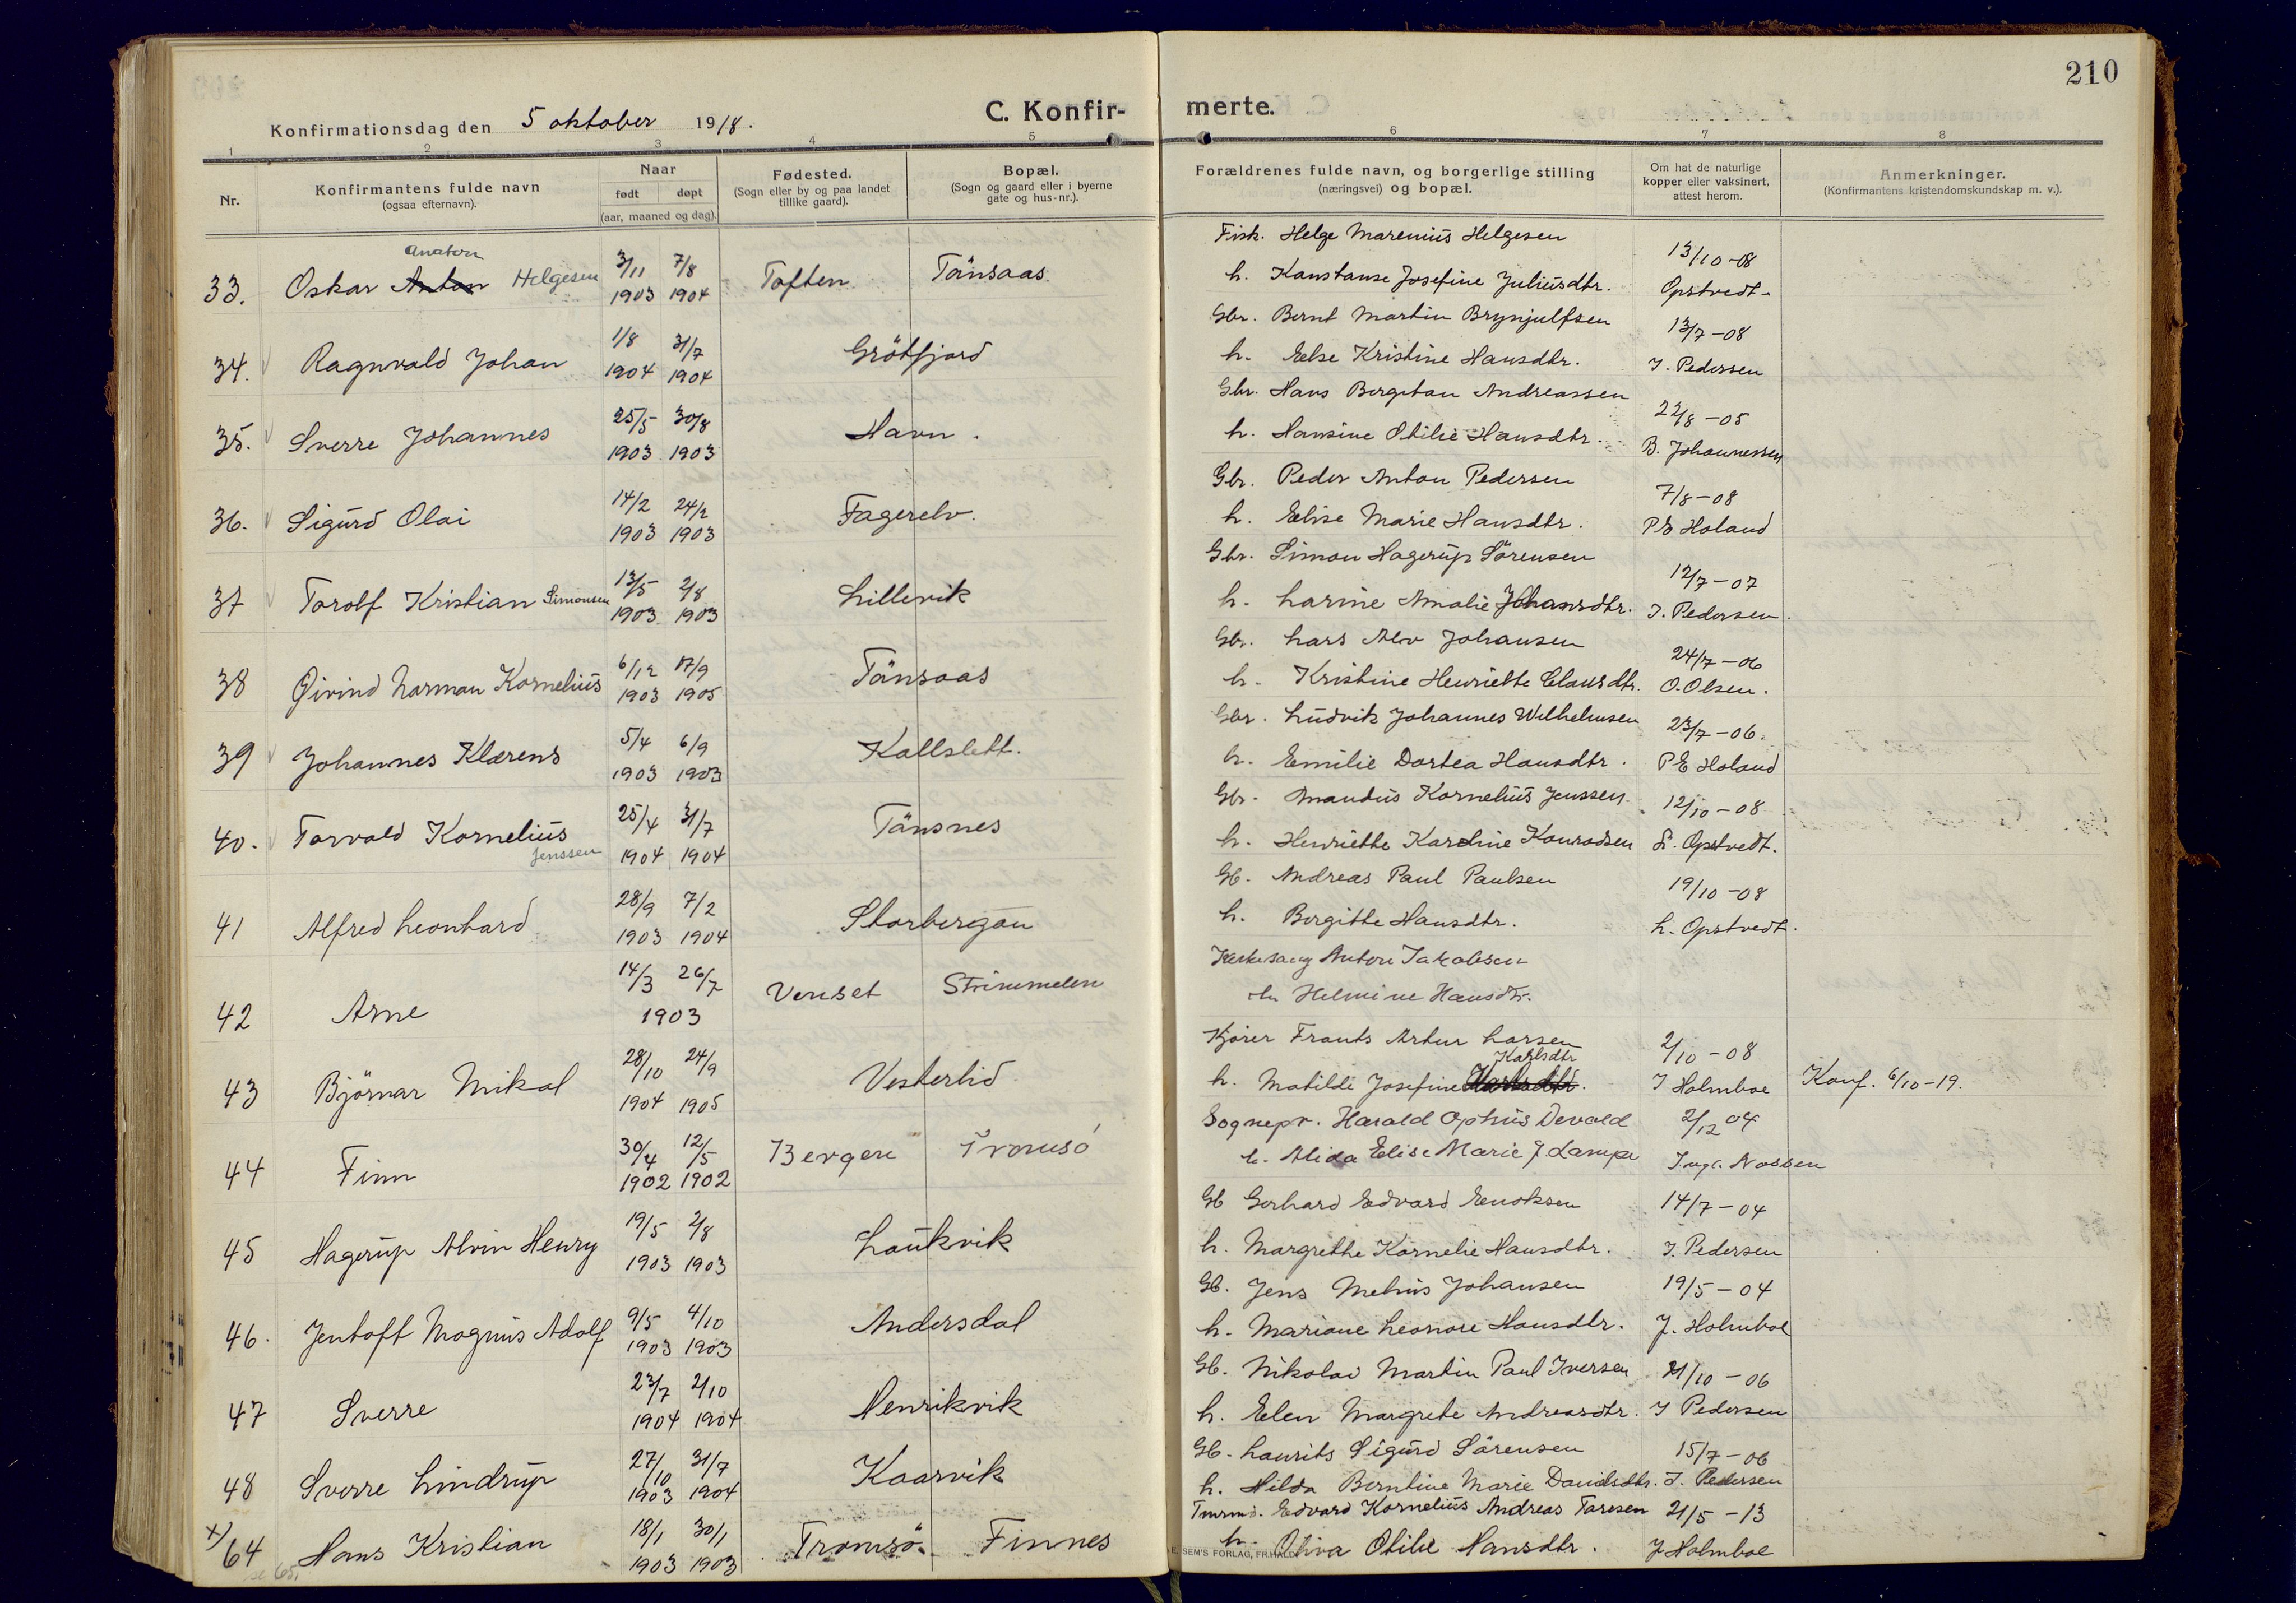 210
Konfirmationsdag den 5 oktober 1918.
C. Konfir- merte.
1 2 3 4 5 6 7 8
Nr.
Konfirmantens fulde navn
(ogsaa efternavn).
Naar
født døpt
(aar, maaned og dag).
Fødested.
(Sogn eller by og paa landet
tillike gaard).
Bopæl.
(Sogn og gaard eller i byerne
gate og hus-nr.).
Forældrenes fulde navn, og borgerlige stilling
(næringsvei) og bopæl.
Om hat de naturlige
kopper eller vaksinert,
attest herom.
Anmerkninger.
(Konfirmantens kristendomskundskap m. v.).
Anaton
33. Oskar Anton Helgesen 3/11 7/8 Toften Tänsaas Fisk. Helge Marenius Helgesen 13/10-08
1903 1904 h. Konstanse Josefine Juliusdtr. Opstvedt
34. Ragnvald Johan 1/8 31/7 Grötfjord Gbr. Bernt Martin Brynjulfsen 13/7-08
1904 1904 h. Else Kristine Hansdtr. I. Pedersen
35. Sverre Johannes 25/5 30/8 Havn. Gbr. Hans Bergitan Andreassen 22/8-05
1903 1903 h. Hansine Otilie Hansdtr. B. Johannessen
36. Sigurd Olai 14/2 24/2 Fagerelv. Gbr. Peder Anton Pedersen 7/8-08
1903 1903 h. Elise Marie Hansdtr. P E Holand
37 Torolf Kristian Simonsen 13/5 2/8 Lillevik Gbr. Simon Hagerup Sörensen 12/7-07
1903 1903 h. Larine Amalie Johansdtr. I. Pedersen.
38 Øivind Norman Kornelius 6/12 17/9 Tänsaas Gbr. Lars Alev Johansen 24/7-06
1903 1905 h. Kristine Henriette Clausdtr. O. Olsen.
39 Johannes Klærens 5/4 6/9 Kallslett. Gbr. Ludvik Johannes Wilhelmsen 23/7-06.
1903 1903 h. Emilie Dortea Hansdtr. P E Holand
40. Torvald Kornelius 25/4 31/7 Tänsnes Gbr. Amandus Kornelius Jenssen 12/10-08
Jenssen 1904 1904 h. Henriette Karoline Konradsen L. Opstvedt.
41 Alfred Leonhard 28/9 7/2 Storbergan Gb. Andreas Paul Paulsen 19/10-08
1903 1904 h. Bergitte Hansdtr. L. Opstvedt.
42 Arne 14/3 26/7 Venset Strimmelen Anton Jakobsen
1903 h. Helmine Hansdtr.
43 Björnar Mikal 28/10 24/9 Vesterlid Kjører Frants Artur Larsen 2/10-08
Karlsdtr
1904 1905 h. Matilde Josefine J Holmboe Konf. 6/10-19.
44 Finn 30/4 12/5 Bergen Tromsö Sognepr. Harald Ophus Devold 2/12 04
1902 1902 h. Alida Elise Marie J Lampe Ingl. Nossen
45 Hagerup Alvin Henry 19/5 2/8 Laukvik Gb Gerhard Edvard Enoksen 14/7-04
1903 1903 h. Margrethe Kornelie Hansdtr. I. Pedersen
46. Jentoft Magnus Adolf 9/5 4/10 Andersdal Gb. Jens Mehus Johansen 19/5-04
1903 1903 h. Mariane Leonore Hansdtr. J. Holmboe
47 Sverre 23/7 2/10 Henrikvik Gb. Nikolai Martin Paul Iversen 21/10-06
1904 1904 h. Elen Margrete Andreasdtr. I Pedersen
48 Sverre Lindrup 27/10 31/7 Kaarvik Gb. Laurits Sigurd Sörensen 15/7-06
1903 1904 h. Hilda Berntine Marie Danielsdtr. I. Pedersen
x) 64 Hans Kristian 18/1 30/1 Tromsö Finnes Tmrmd. Edvard Kornelius Andreas Toresen 21/5-13
se 65. 1903 1903 h. Oliva Otilie Hansdtr. J Holmboe
E. SEM'S FORLAG, FR.HALD